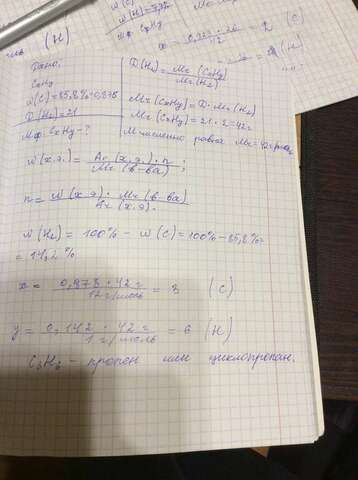 (H)
Дано:
CxHy
W(C) = 85,8% = 0,875
D(H₂) = 21
Мф. CxHy - ?
D(H₂) = Mr (CxHy) / Mr (H₂)
Mr (CxHy) = D · Mr (H₂)
Mr (CxHy) = 21 · 2 = 42
M численно равна Mr = 42
W (х.э.) = Ar (х.э.) · n / Mr (в-ва) ;
n = W (х.э) · Mr (в-ва) / Ar (х.э).
W (H₂) = 100% - W (C) = 100% - 85,8% =
= 14,2 %
x = 0,878 · 42 г / 12 г/моль = 3 (C)
y = 0,142 · 42 г / 1 г/моль = 6 (H)
C₃H₆ - пропен или циклопропан.